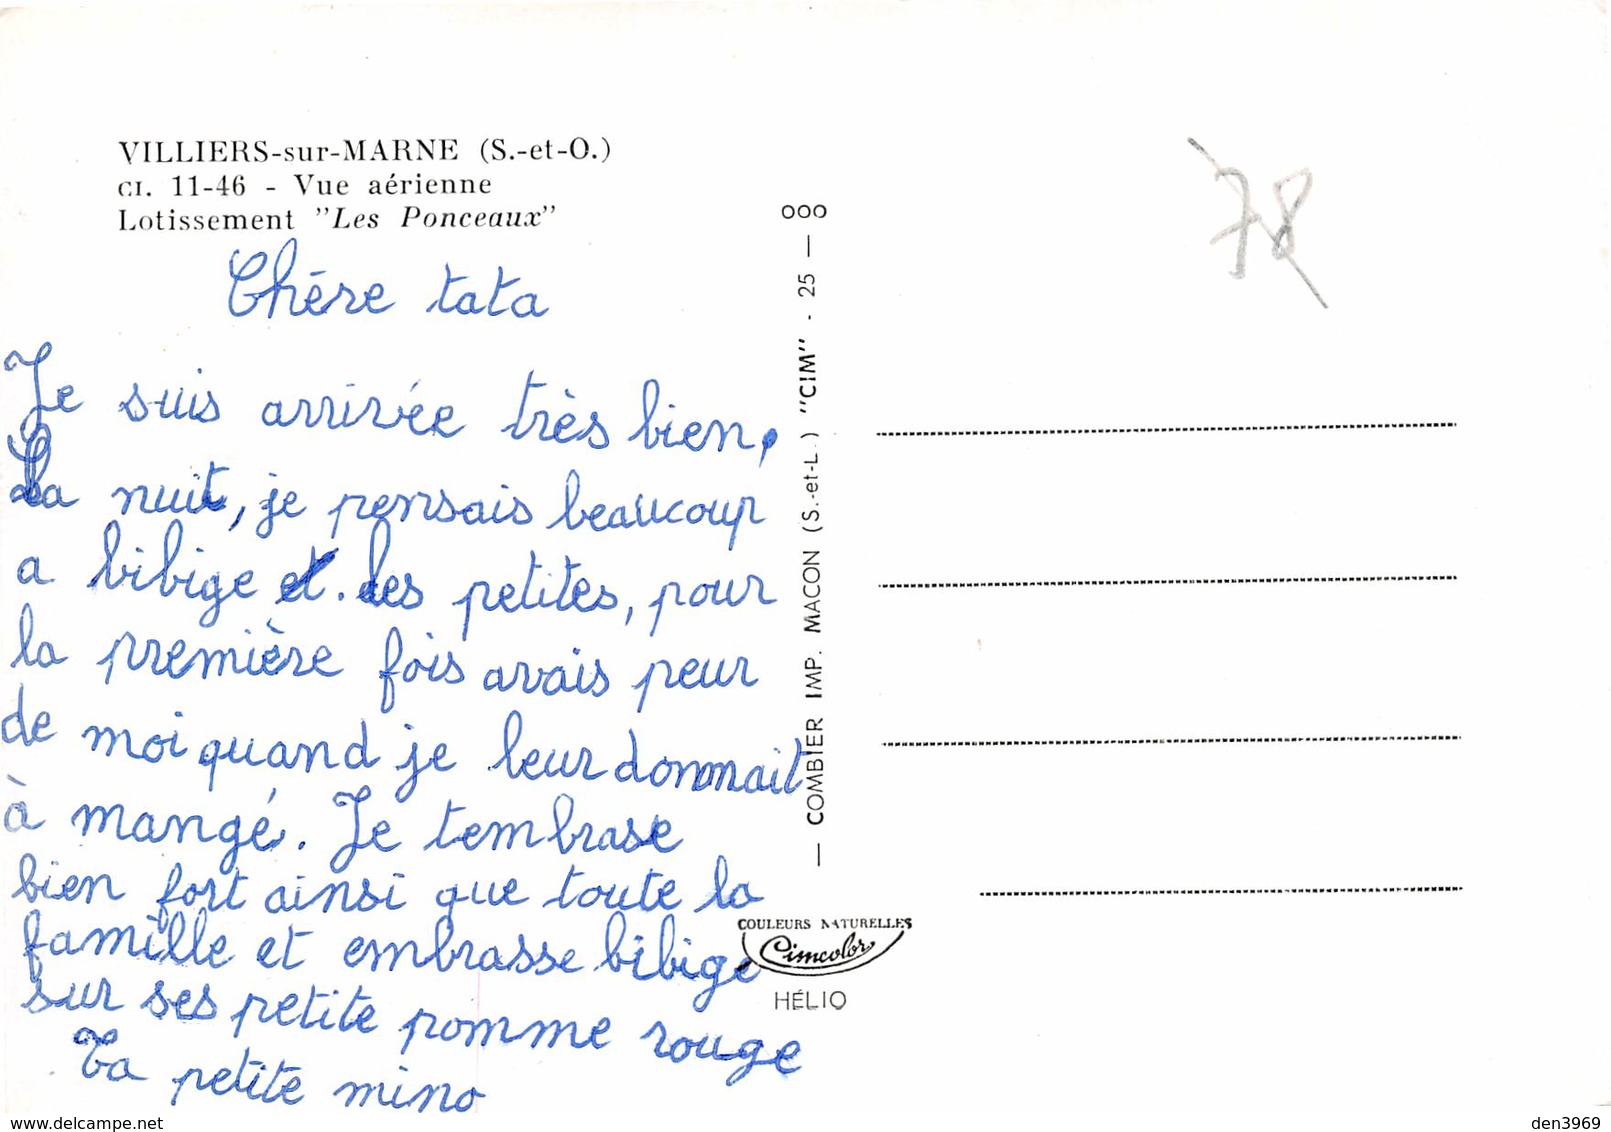 VILLIERS-sur-MARNE (S.-et-O.)
CI. 11-46 - Vue aérienne
Lotissement "Les Ponceaux"
Chére tata
Je suis arrivée très bien,
La nuit, je pensais beaucoup
a bibige et. les petites, pour
la première fois avais peur
de moi quand je leur donnait
à mangé. Je tembrase
bien fort ainsi que toute la
famille et embrasse bibige
sur ses petite pomme rouge
Ta petite mino
COMBIER IMP. MACON (S.-et-L.) "CIM" - 25 — 000
COULEURS NATURELLES
Cimcolor
HÉLIO
78
den3969